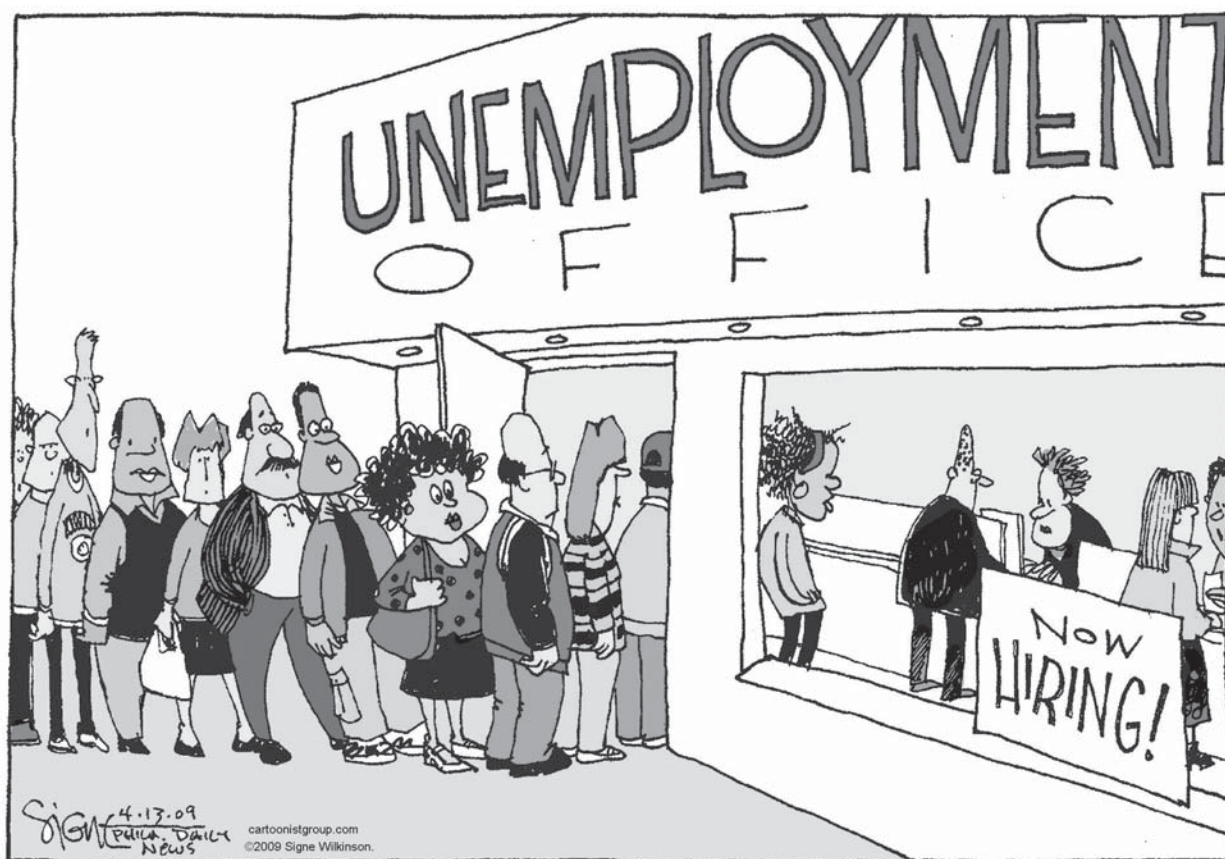 UNEMPLOYMENT
OFFICE
NOW
HIRING!
Signe
4.13.09
PHILA. DAILY
NEWS
cartoonistgroup.com
©2009 Signe Wilkinson.